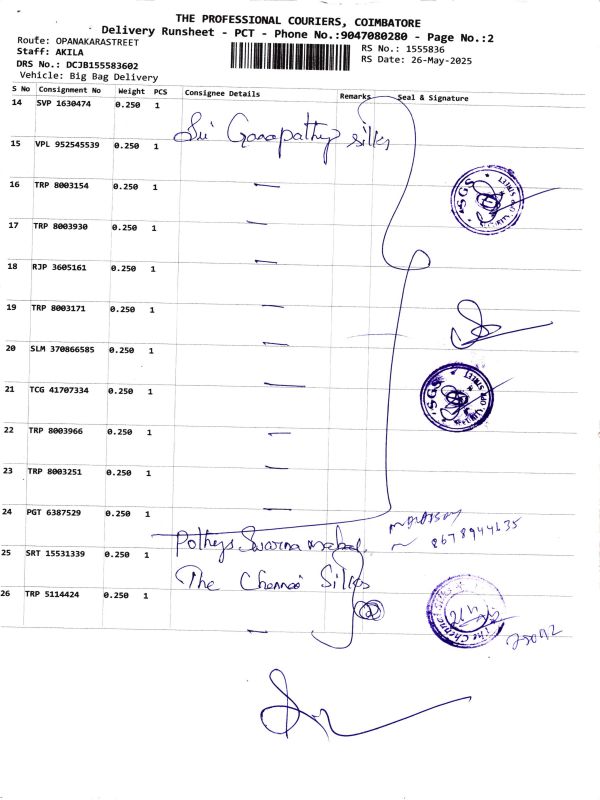 THE PROFESSIONAL COURIERS, COIMBATORE
Delivery Runsheet - PCT - Phone No.:9047080280 - Page No.:2
Route: OPANAKARASTREET
Staff: AKILA
DRS No.: DCJB155583602
Vehicle: Big Bag Delivery
RS No.: 1555836
RS Date: 26-May-2025
S No Consignment No Weight PCS Consignee Details Remarks Seal & Signature
14 SVP 1630474 0.250 1
Sri Ganapathy silks
15 VPL 952545539 0.250 1
16 TRP 8003154 0.250 1 —
SGS
17 TRP 8003930 0.250 1 —
18 RJP 3605161 0.250 1 —
19 TRP 8003171 0.250 1 —
20 SLM 370866585 0.250 1 —
21 TCG 41707334 0.250 1 —
SGS
22 TRP 8003966 0.250 1 —
23 TRP 8003251 0.250 1 —
24 PGT 6387529 0.250 1 —
Pothys Swarna mahal
25 SRT 15531339 0.250 1
The Chennai Silks
26 TRP 5114424 0.250 1 —
2
The Chennai Silks